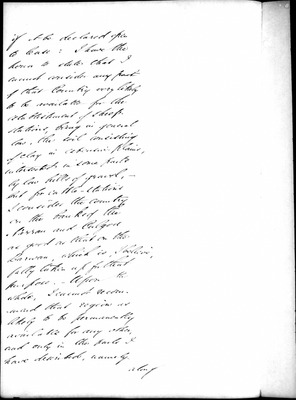 if it be declared open
to lease: I have the
honor to state that I
cannot consider any part
of this Country very likely
to be available for the
establishment of sheep
stations, being in general
low, the soil consisting
of clay in extensive plains,
intersected in some parts
by low belts of gravel, –
but for cattle-stations
I consider the country
on the banks of the
Narran and
as good as that on the
Barwan, which is, I believe,
fully taken up for that
purpose. – Upon the
whole, I cannot recom-
mend that region as
likely to be permanently
available for any other,
and only in the parts I
have described, namely
along